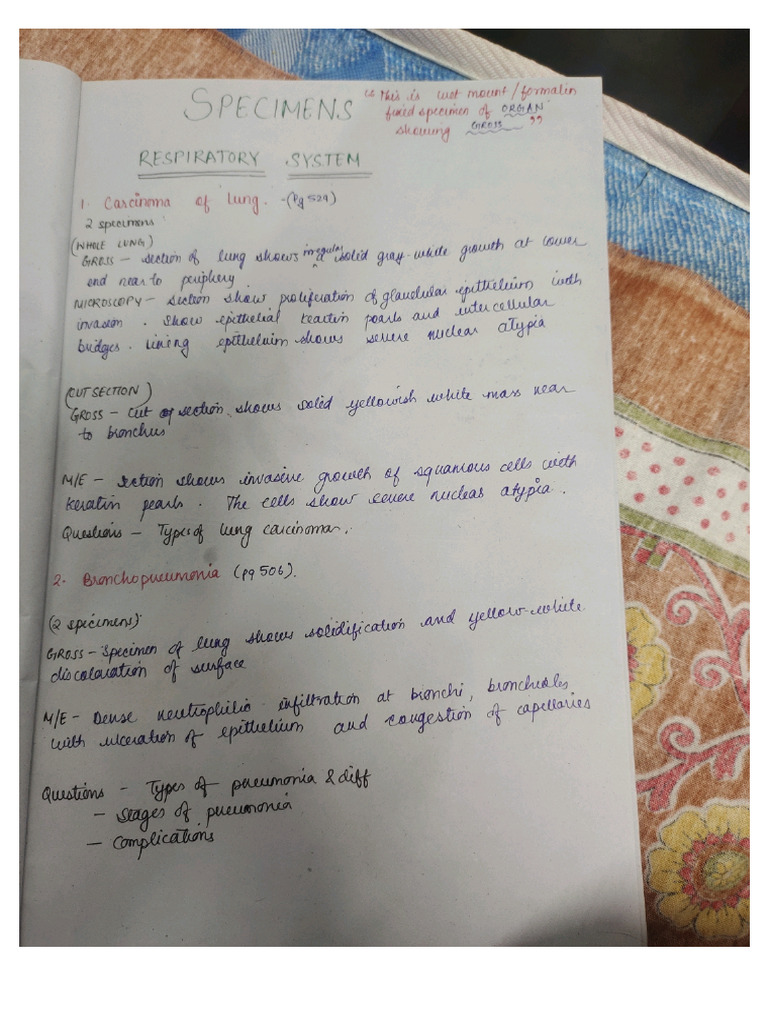 SPECIMENS
"This is wet mount/formalin
fixed specimen of ORGAN
showing GROSS"
RESPIRATORY SYSTEM
1. Carcinoma of lung. -(Pg 529)
2 specimens
(WHOLE LUNG)
GROSS - section of lung shows irregular solid gray-white growth at lower
end near to periphery.
MICROSCOPY - Section show proliferation of glandular epithelium with
invasion. Show epithelial keratin pearls and intercellular
bridges. Lining epithelium shows severe nuclear atypia
(CUT SECTION)
GROSS - Cut section shows solid yellowish white mass near
to bronchus
M/E - Section shows invasive growth of squamous cells with
keratin pearls. The cells show severe nuclear atypia.
Questions - Types of lung carcinoma.
2. Bronchopneumonia (pg 506).
(2 specimens)
GROSS - Specimen of lung shows solidification and yellow-white
discolaration of surface
M/E - Dense neutrophilic infiltration at bronchi, bronchioles
with ulceration of epithelium and congestion of capillaries
Questions - Types of pneumonia & diff
- Stages of pneumonia
- Complications